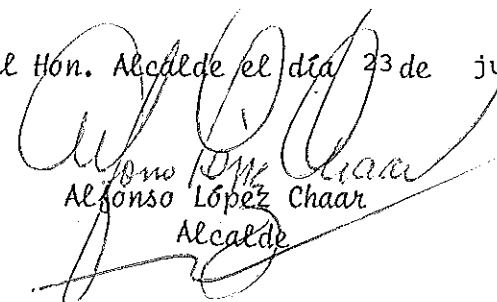 l Hon. Alcalde el día 23 de ju
Alfonso López Chaar
Alfonso López Chaar
Alcalde